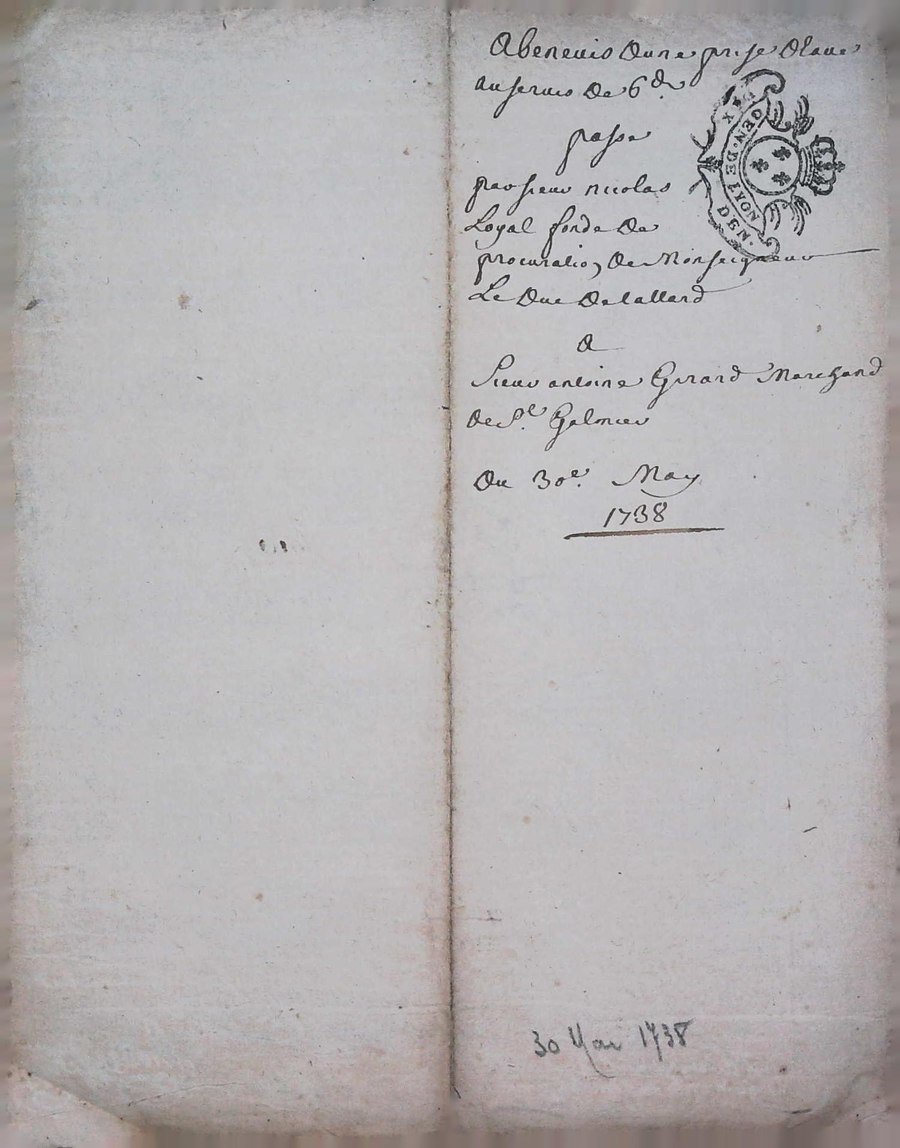 Abenevis dune prise deaue
au servis de 6 d.
passe
par sieur nicolas
Loyal fonde de
procuration de Monseigneur
Le Duc de tallard
A
Sieur antoine Girard Marchand
de St. Galmier
Du 30e. May
1738
GEN. DE LYON
DIX DEN.
30 Mai 1738